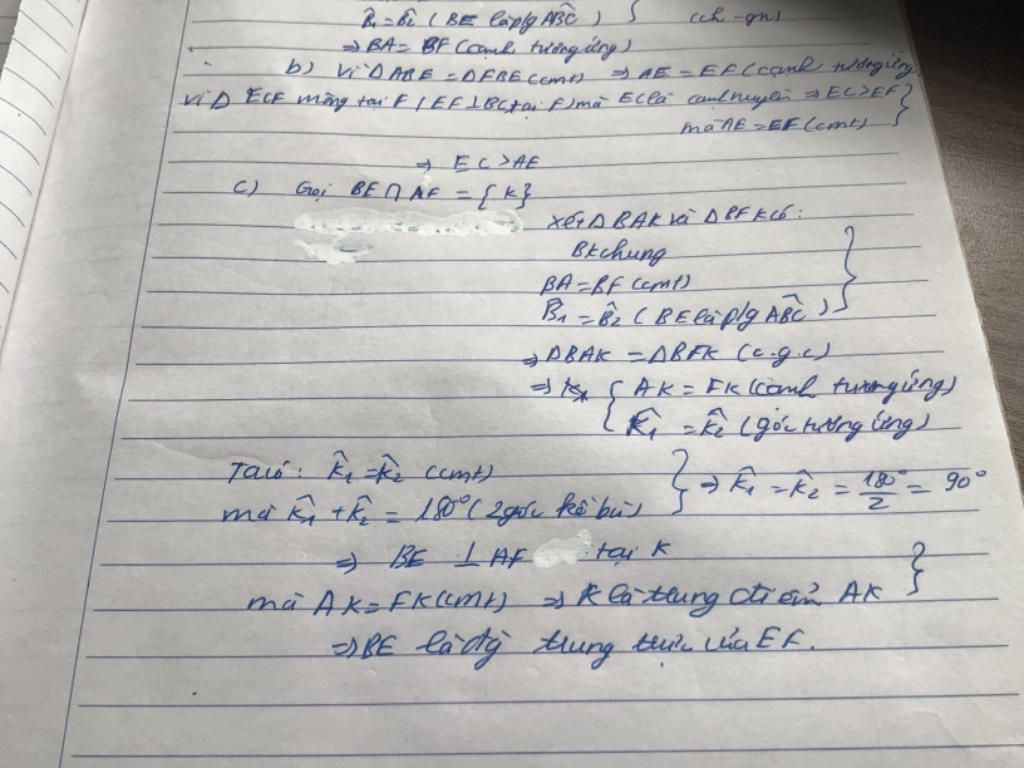 B̂₁ = B̂₂ (BE là p/g AB̂C) } (ch - gn)
⇒ BA = BF (cạnh tương ứng)
b) Vì Δ ABE = Δ FBE (cmt) ⇒ AE = EF (cạnh tương ứng)
Vì Δ ECF vuông tại F (EF ⊥ BC tại F) mà EC là cạnh huyền ⇒ EC > EF }
mà AE = EF (cmt)
⇒ EC > AE
c) Gọi BE ∩ AF = {K}
Xét Δ BAK và Δ BFK có:
BK chung
BA = BF (cmt)
B̂₁ = B̂₂ (BE là p/g AB̂C) }
⇒ Δ BAK = Δ BFK (c.g.c)
⇒ { AK = FK (cạnh tương ứng)
K̂₁ = K̂₂ (góc tương ứng)
Ta có: K̂₁ = K̂₂ (cmt) } ⇒ K̂₁ = K̂₂ = 180°/2 = 90°
mà K̂₁ + K̂₂ = 180° (2 góc kề bù)
⇒ BE ⊥ AF tại K
mà AK = FK (cmt) ⇒ K là trung điểm AK }
⇒ BE là đg trung trực của EF.